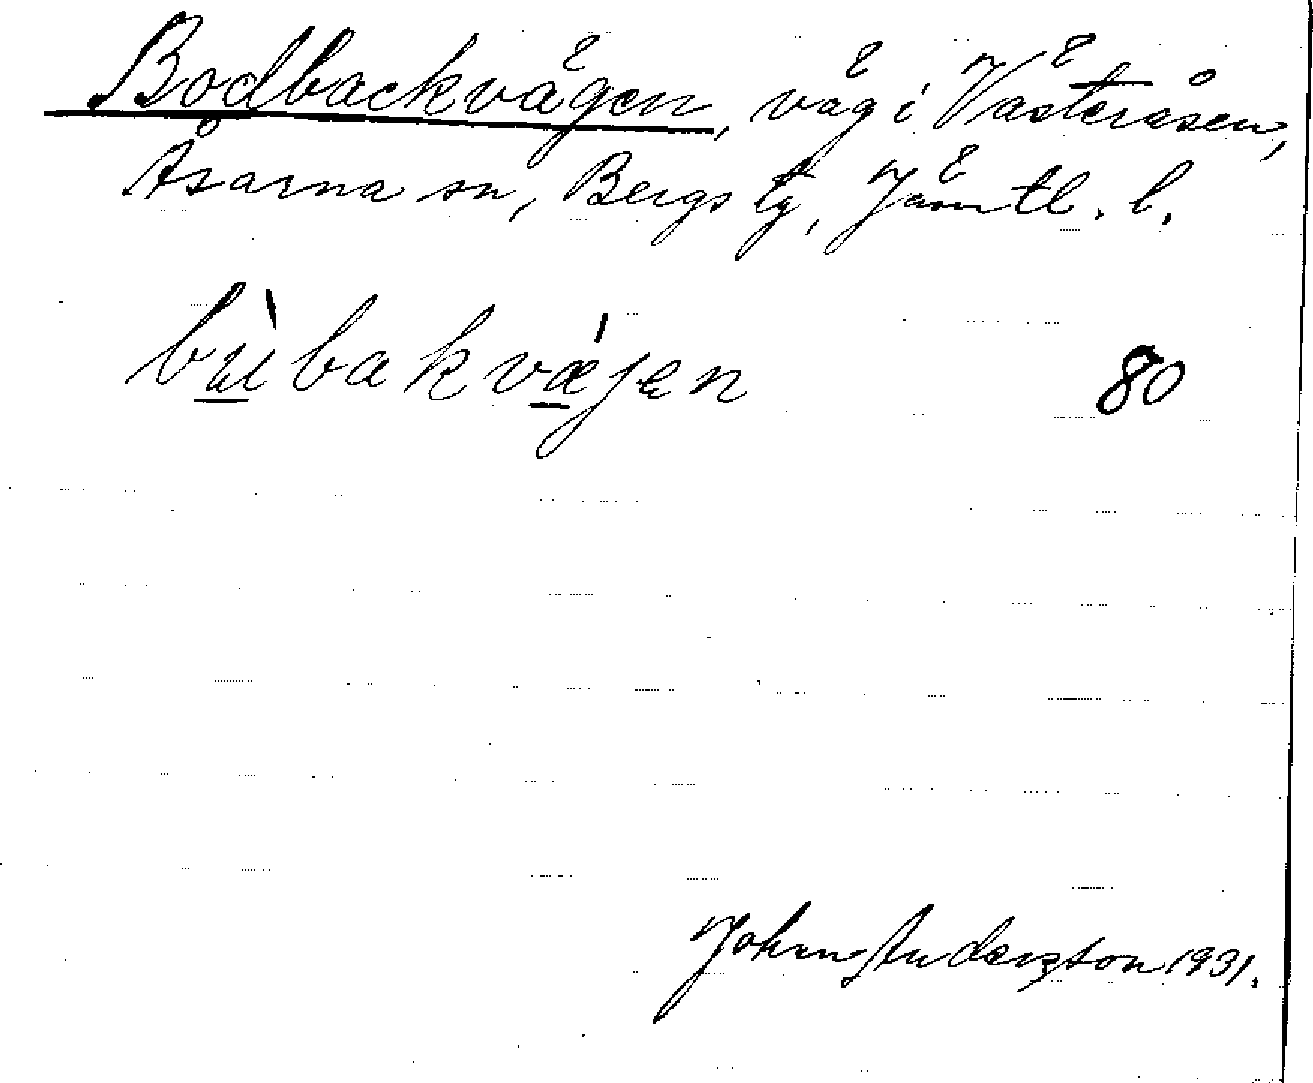 Bodbackvägen, väg i Västeråsen,
Åsarna sn, Bergs tg, Jämtl. l.
bu̠̇bakvǽ̠jen 80
John Anderzton 1931.